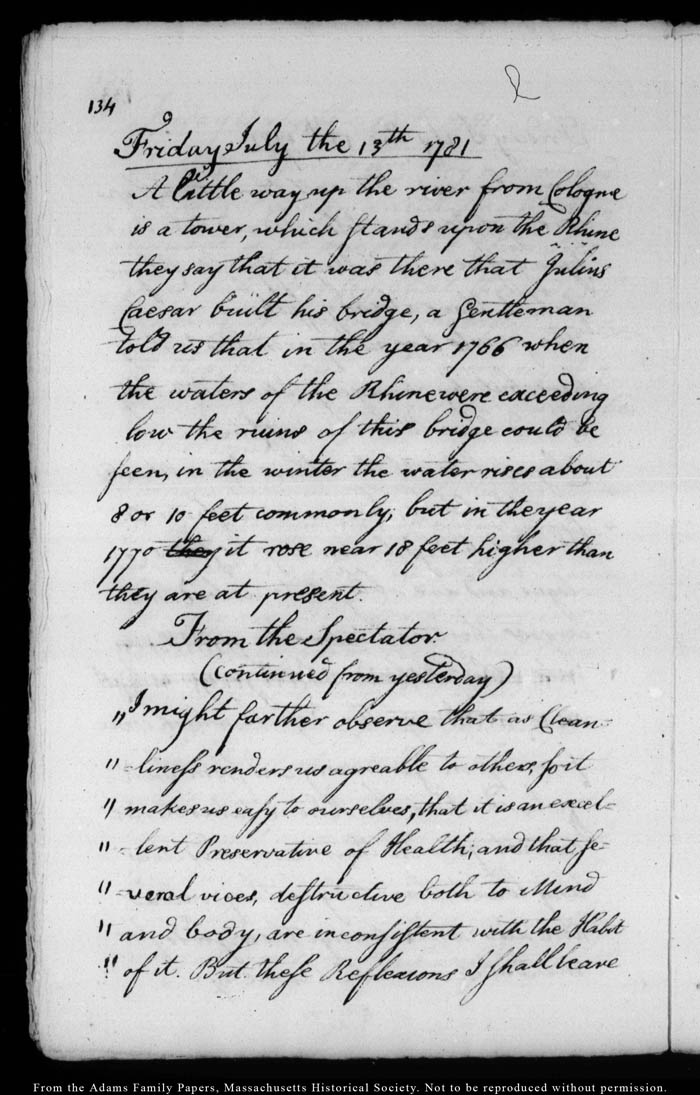 134
Friday July the 13th 1781
A little way up the river from Cologne
is a tower, which stands upon the Rhine
they say that it was there that Julius
Caesar built his bridge, a Gentleman
told us that in the year 1766 when
the waters of the Rhine were exceeding
low the ruins of this bridge could be
seen, in the winter the water rises about
8 or 10 feet commonly, but in the year
1770 they it rose near 18 feet higher than
they are at present.
From the Spectator
(continued from yesterday)
"I might farther observe that as Clean=
" -liness renders us agreable to others, so it
" makes us easy to ourselves, that it is an excel=
" -lent Preservative of Health, and that se=
" -veral vices, destructive both to Mind
" and body, are inconsistent with the Habit
" of it. But these Reflexions I shall leave
From the Adams Family Papers, Massachusetts Historical Society. Not to be reproduced without permission.